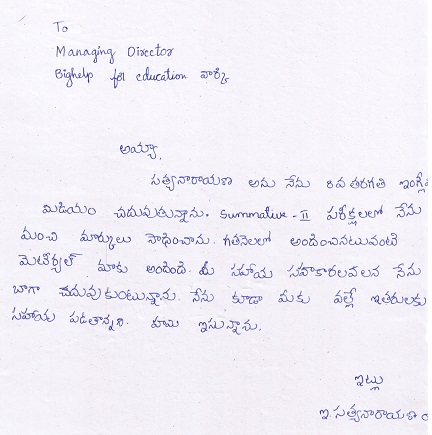 To
Managing Director
Bighelp for education వార్కి
అయ్యా,
సత్యనారాయణ అను నేను 8వ తరగతి ఇంగ్లీ
మిడియం చదువుతున్నాను. Summative - II పరీక్షలలో నేను
మంచి మార్కులు సాధించాను. గతనెలలో అందించినటువంటి
మెటీర్యల్ మాకు అందింది. మీ సహాయ సహాకారాలవలన నేను
బాగా చదువుకుంటున్నాను. నేను కూడా మీకు వల్లే ఇతరులకు
సహాయ పడతాన్నని. హామి ఇసున్నాను.
ఇట్లు
ఇ. సత్యనారాయణ